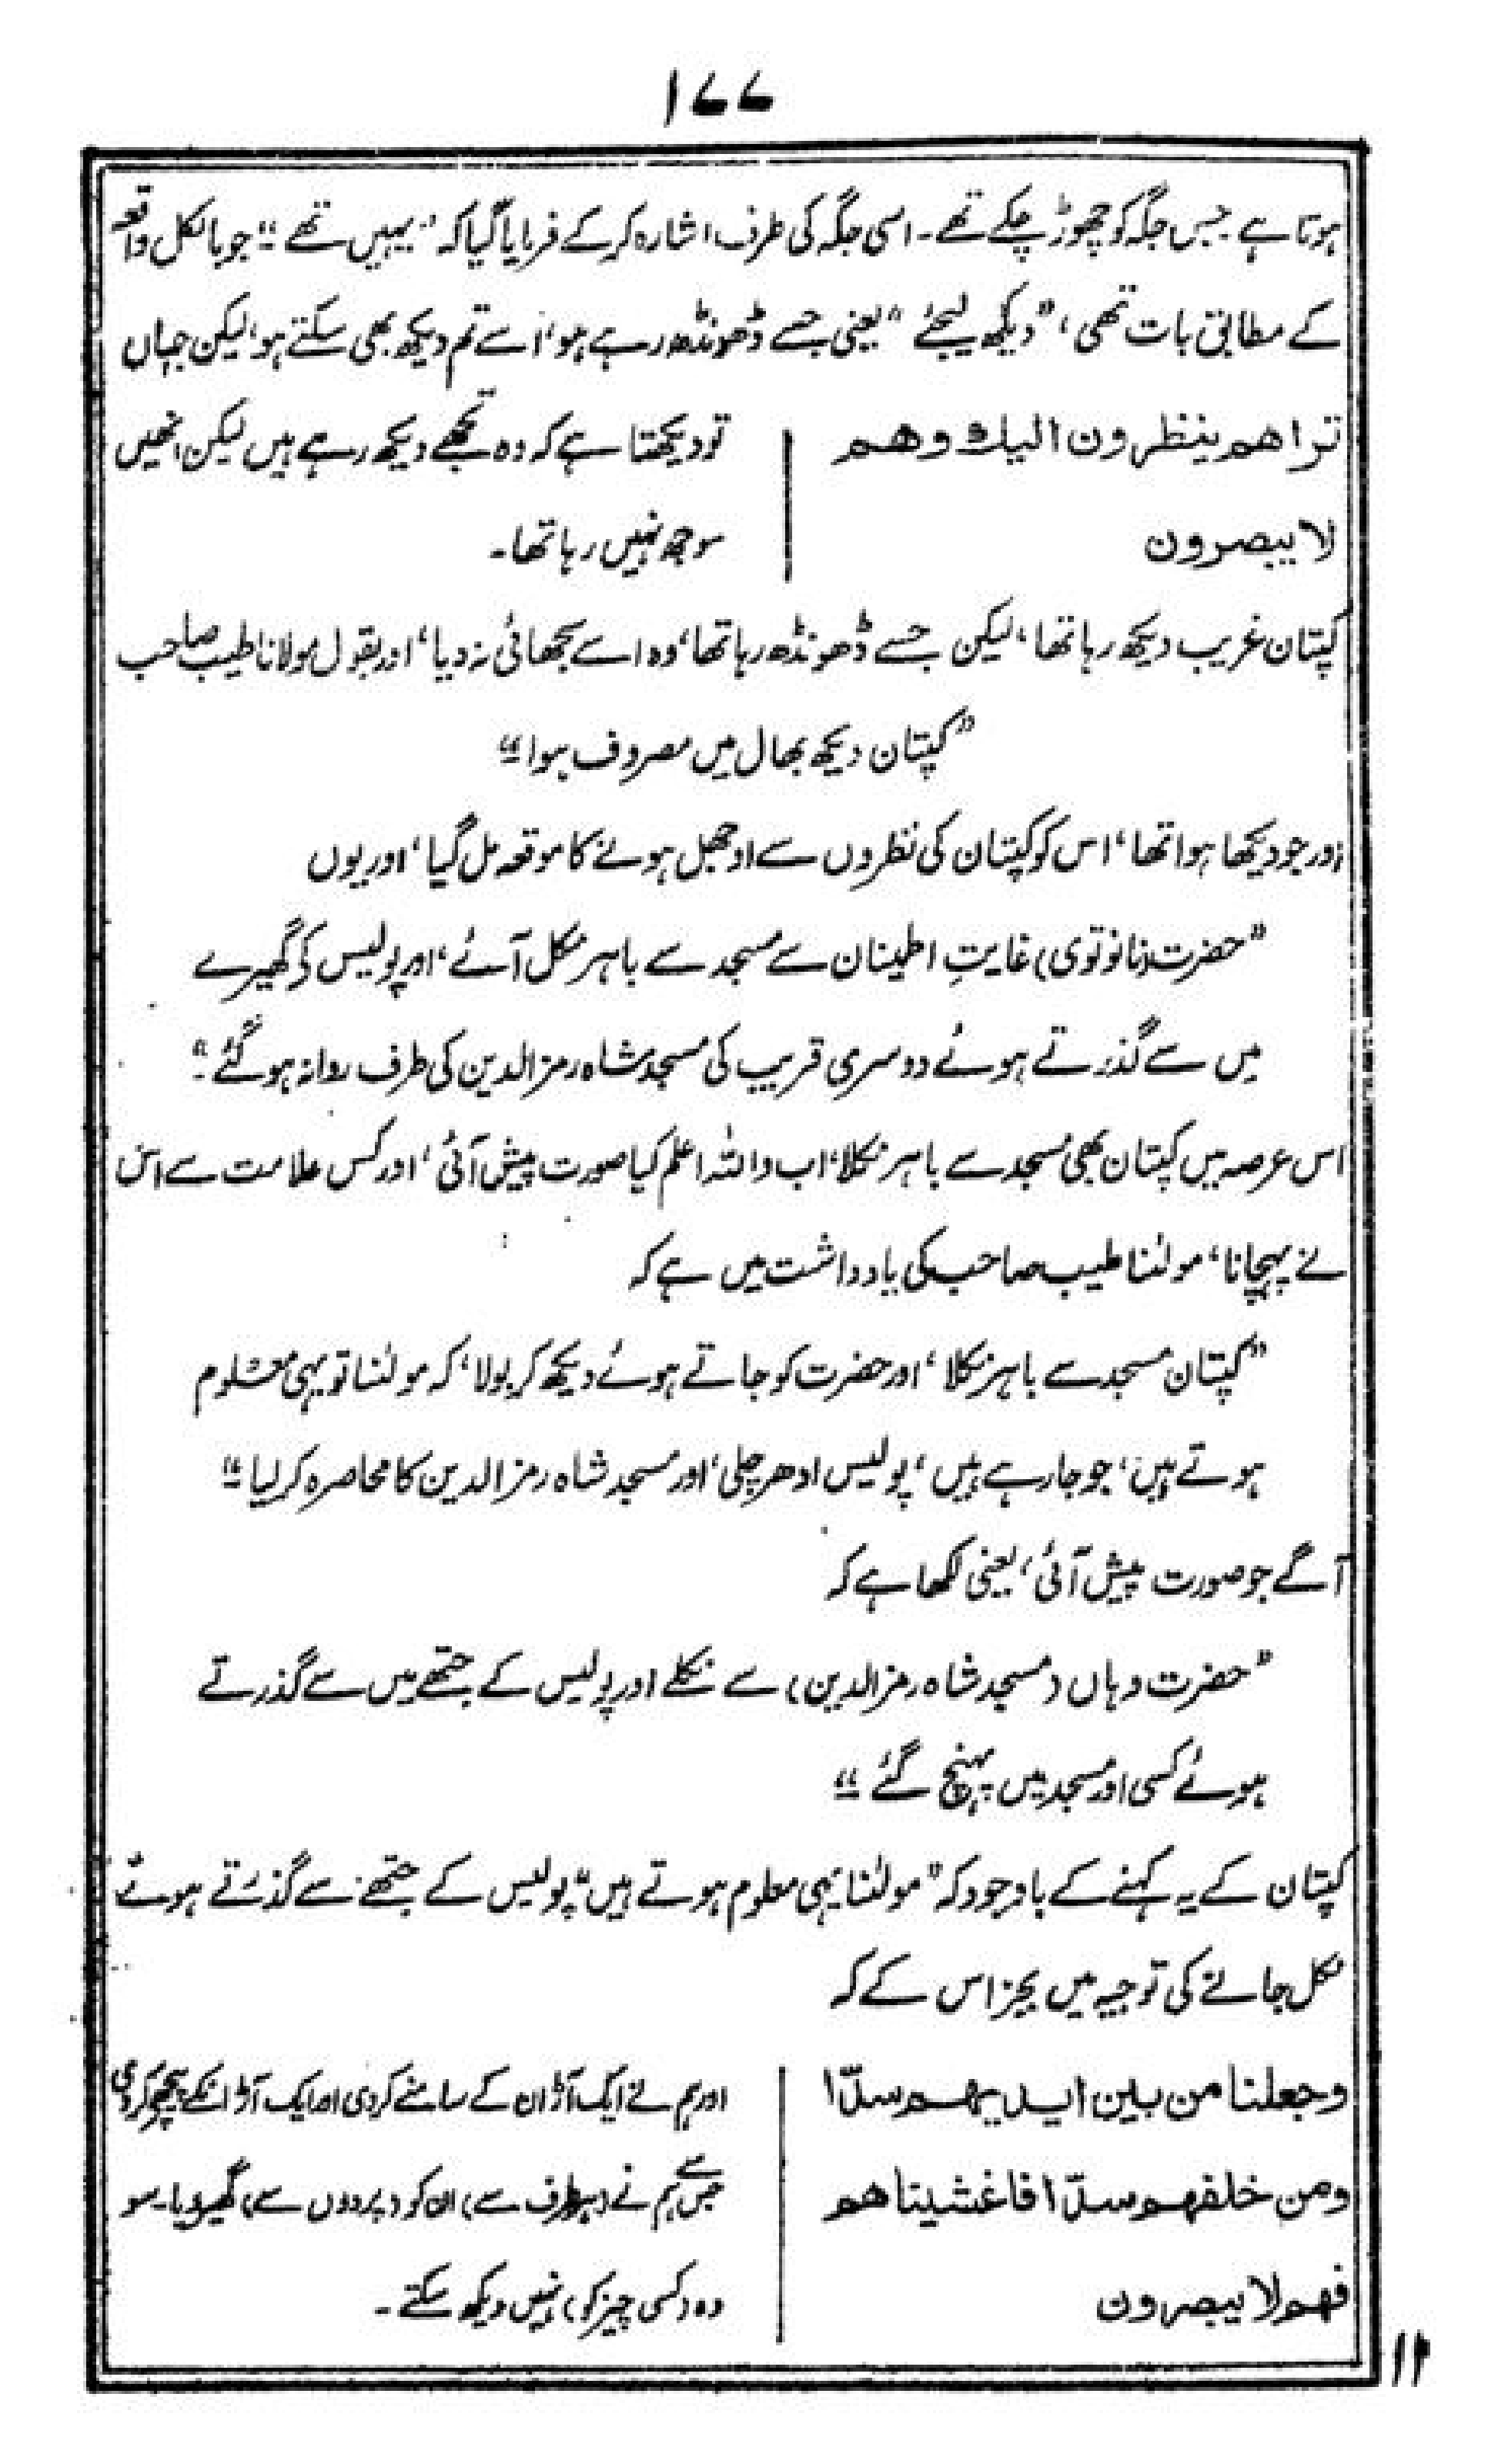 ۱۷۷
ہوتا ہے۔ جس جگہ کو چھوڑ چکے تھے۔ اسی جگہ کی طرف اشارہ کرکے فرمایا گیا کہ "یہیں تھے" جو بالکل واقعہ
کے مطابق بات تھی، "دیکھ لیجئے" یعنی جسے ڈھونڈھ رہے ہو، اسے تم دیکھ بھی سکتے ہو، لیکن جہاں
تراهم ينظرون اليك وهم
تو دیکھتا ہے کہ وہ تجھے دیکھ رہے ہیں لیکن انھیں
لا يبصرون
سوجھ نہیں رہا تھا۔
کپتان غریب دیکھ رہا تھا، لیکن جسے ڈھونڈھ رہا تھا، وہ اسے سجھائی نہ دیا، اور بقول مولانا طیب صاحب
"کپتان دیکھ بھال میں مصروف ہوا"
اور جو دیکھا ہوا تھا، اس کو کپتان کی نظروں سے اوجھل ہونے کا موقعہ مل گیا، اور یوں
"حضرت (نانوتوی) غایتِ اطمینان سے مسجد سے باہر نکل آئے، اور پولیس کی گھیرے
میں سے گذرتے ہوئے دوسری قریب کی مسجد شاہ رمز الدین کی طرف روانہ ہوگئے"
اس عرصہ میں کپتان بھی مسجد سے باہر نکلا، اب واللہ اعلم کیا صورت پیش آئی، اور کس علامت سے اس
نے پہچانا، مولٰنا طیب صاحب کی یادداشت میں ہے کہ
"کپتان مسجد سے باہر نکلا، اور حضرت کو جاتے ہوئے دیکھ کر بولا، کہ مولٰنا تو یہی معلوم
ہوتے ہیں، جو جارہے ہیں، پولیس ادھر چلی، اور مسجد شاہ رمز الدین کا محاصرہ کرلیا"
آگے جو صورت پیش آئی، یعنی لکھا ہے کہ
"حضرت وہاں (مسجد شاہ رمز الدین) سے نکلے اور پولیس کے جتھے میں سے گذرتے
ہوئے کسی اور مسجد میں پہنچ گئے"
کپتان کے یہ کہنے کے باوجود کہ "مولٰنا یہی معلوم ہوتے ہیں" پولیس کے جتھے سے گذرتے ہوئے
نکل جانے کی توجیہ میں بجز اس کے کہ
وجعلنا من بين ايديهم سدّا
اور ہم نے ایک آڑ ان کے سامنے کردی اور ایک آڑ انکے پیچھے کردی
ومن خلفهم سدّا فاغشيناهم
جس سے ہم نے (ہر طرف سے) ان کو (پردوں سے) گھیر دیا۔ سو
فهم لا يبصرون
وہ (کسی چیز کو) نہیں دیکھ سکتے۔
۱۲